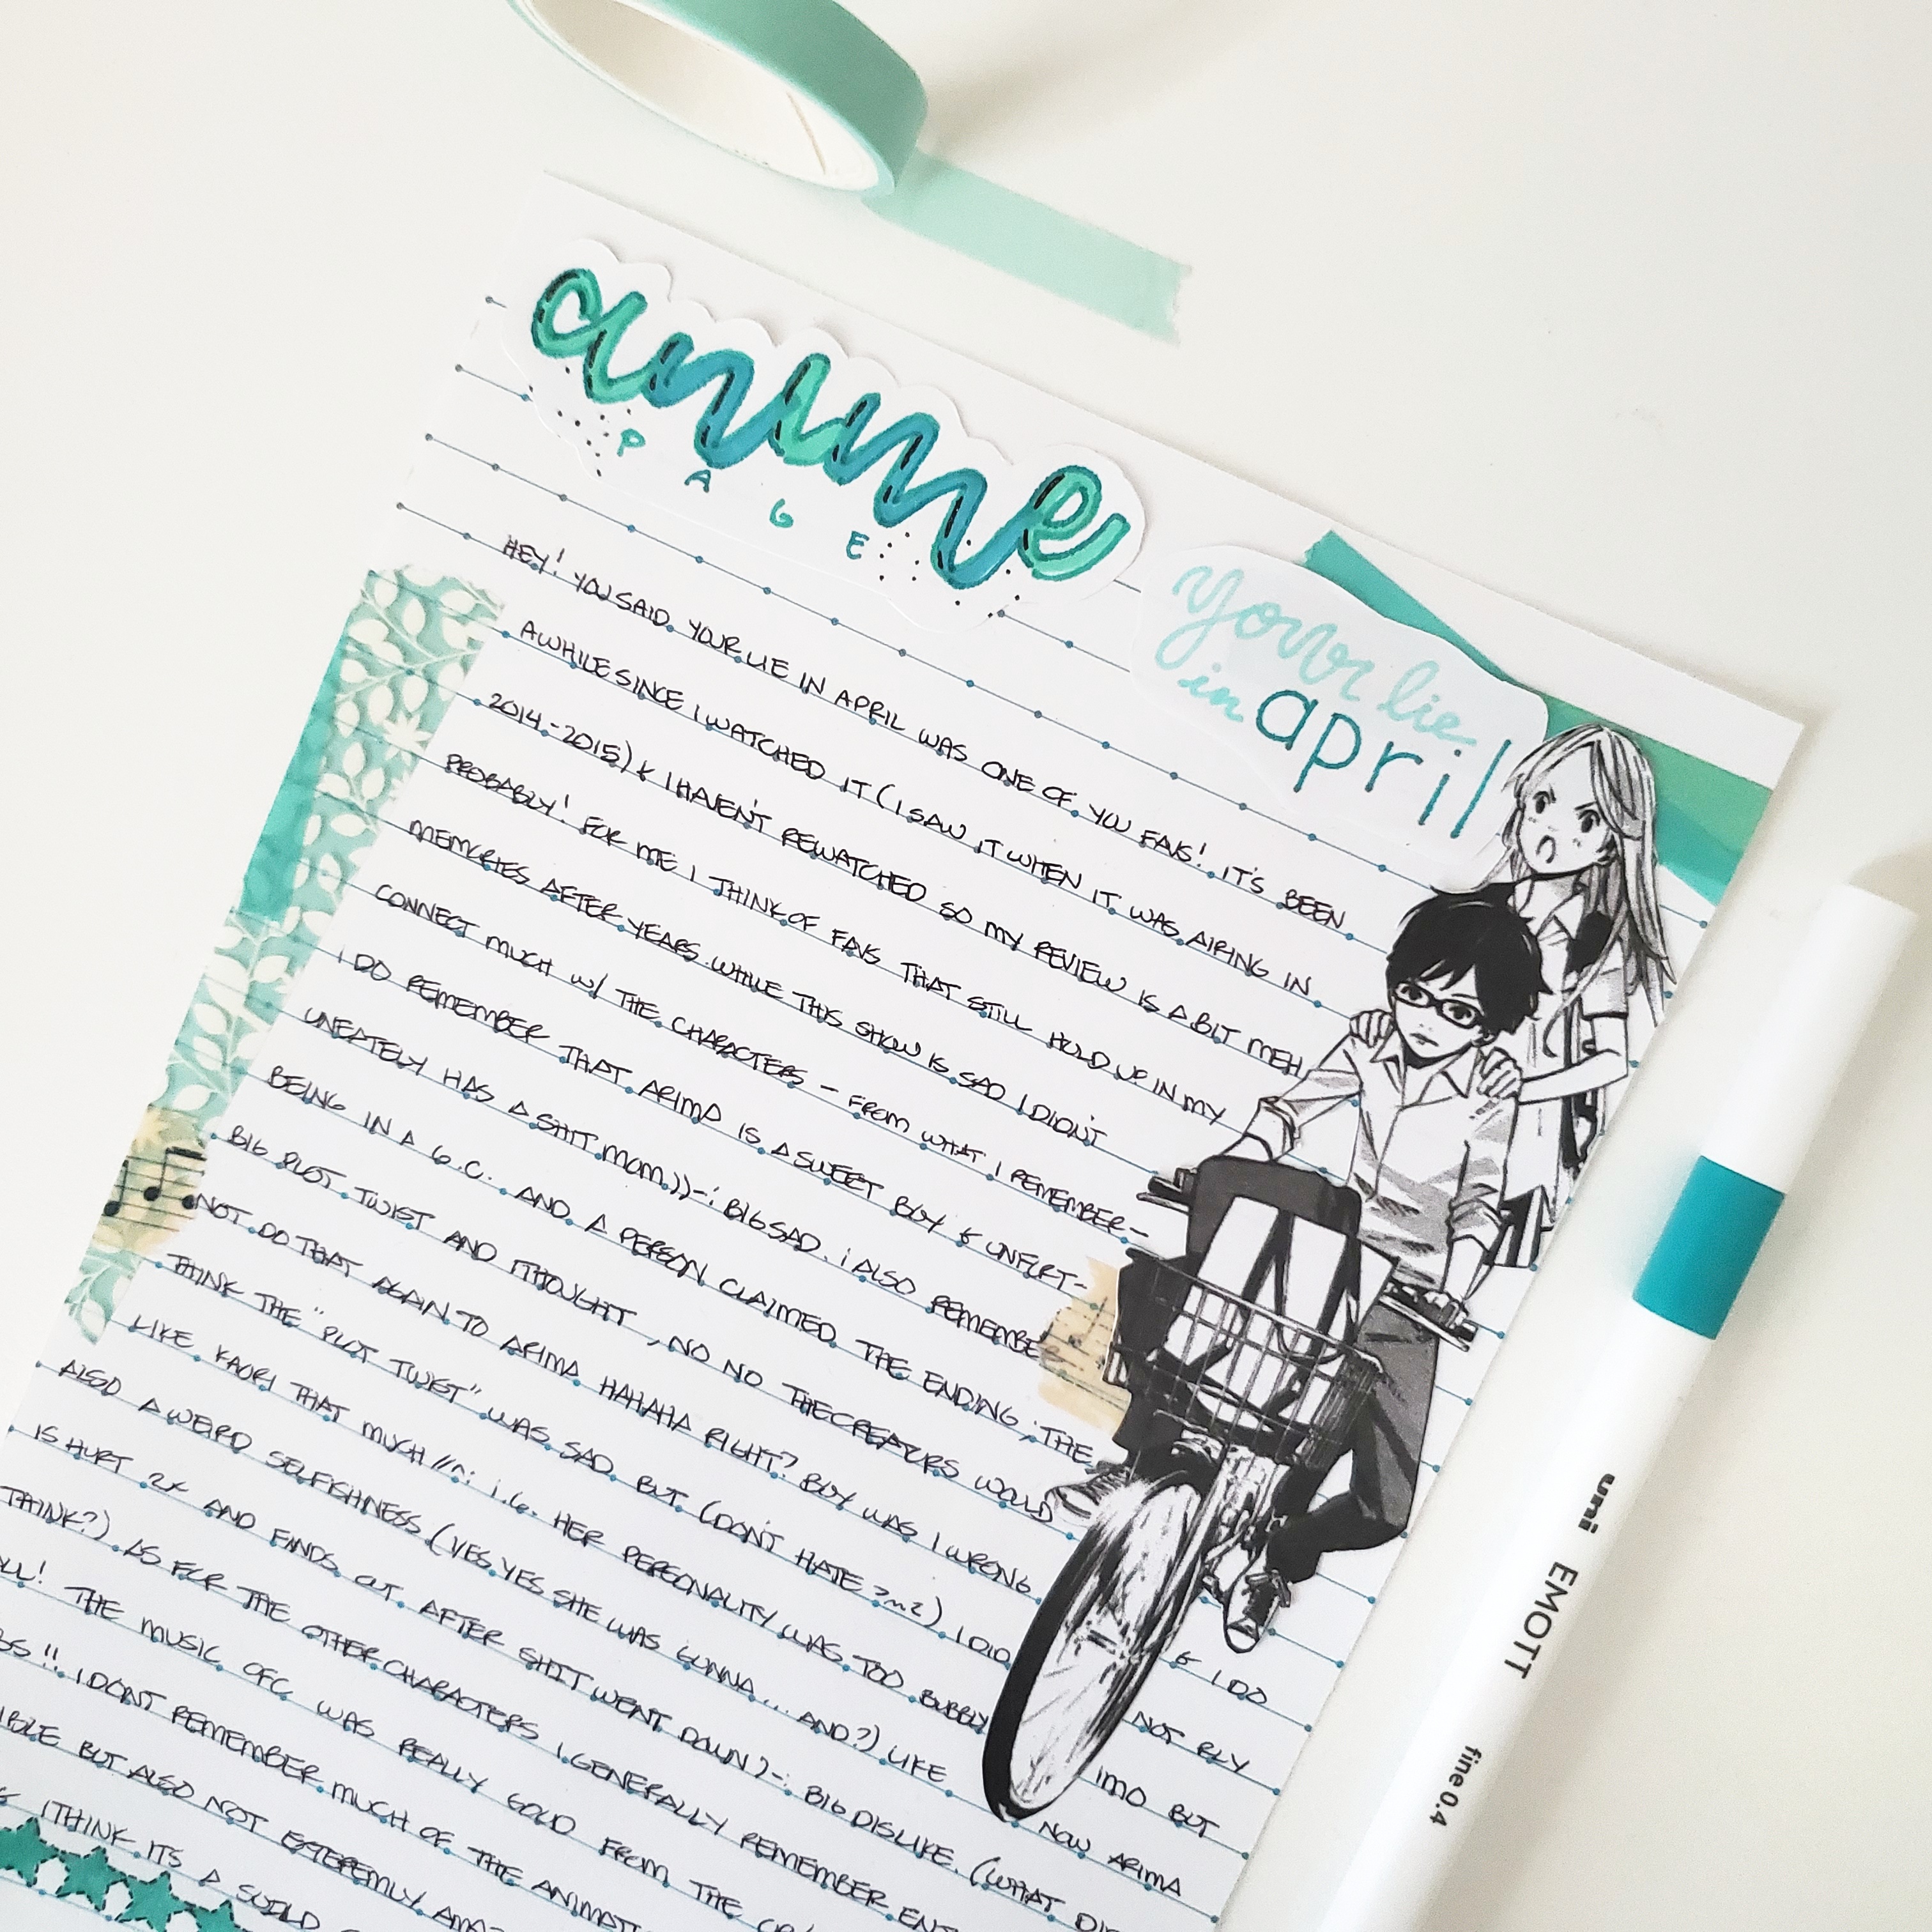 anime
PAGE
your lie
in april
HEY! YOU SAID YOUR LIE IN APRIL WAS ONE OF YOU FAVS! IT'S BEEN
AWHILE SINCE I WATCHED IT (I SAW IT WHEN IT WAS AIRING IN
2014-2015) & I HAVEN'T REWATCHED SO MY REVIEW IS A BIT MEH
PROBABLY! FOR ME I THINK OF FAVS THAT STILL HOLD UP IN MY
MEMORIES AFTER YEARS. WHILE THIS SHOW IS SAD I DIDN'T
CONNECT MUCH W/ THE CHARACTERS - FROM WHAT I REMEMBER-
I DO REMEMBER THAT ARIMA IS A SWEET BOY & UNFORT-
UNEATELY HAS A SHIT MOM. ))-: BIG SAD. I ALSO REMEMBER
BEING IN A G.C. AND A PERSON CLAIMED THE ENDING, THE
BIG PLOT TWIST AND I THOUGHT, NO NO THE CREATORS WOULD
NOT DO THAT AGAIN TO ARIMA HAHAHA RIGHT? BOY WAS I WRONG. & I DO
THINK THE "PLOT TWIST" WAS SAD BUT (DON'T HATE ) I DID NOT RLY
LIKE KAORI THAT MUCH HER PERSONALITY WAS TOO BUBBLY IMO BUT
ALSO A WEIRD SELFISHNESS (YES YES SHE WAS GONNA... AND?) LIKE NOW ARIMA
IS HURT 2X AND FINDS OUT AFTER SHIT WENT DOWN )-: BIG DISLIKE. (WHAT
THINK?) AS FOR THE OTHER CHARACTERS I GENERALLY REMEMBER
THE MUSIC OFC WAS REALLY GOOD FROM THE
!! I DON'T REMEMBER MUCH OF THE
BUT ALSO NOT EXTEREMLY
I THINK ITS A SOLID
uni EMOTT fine 0.4